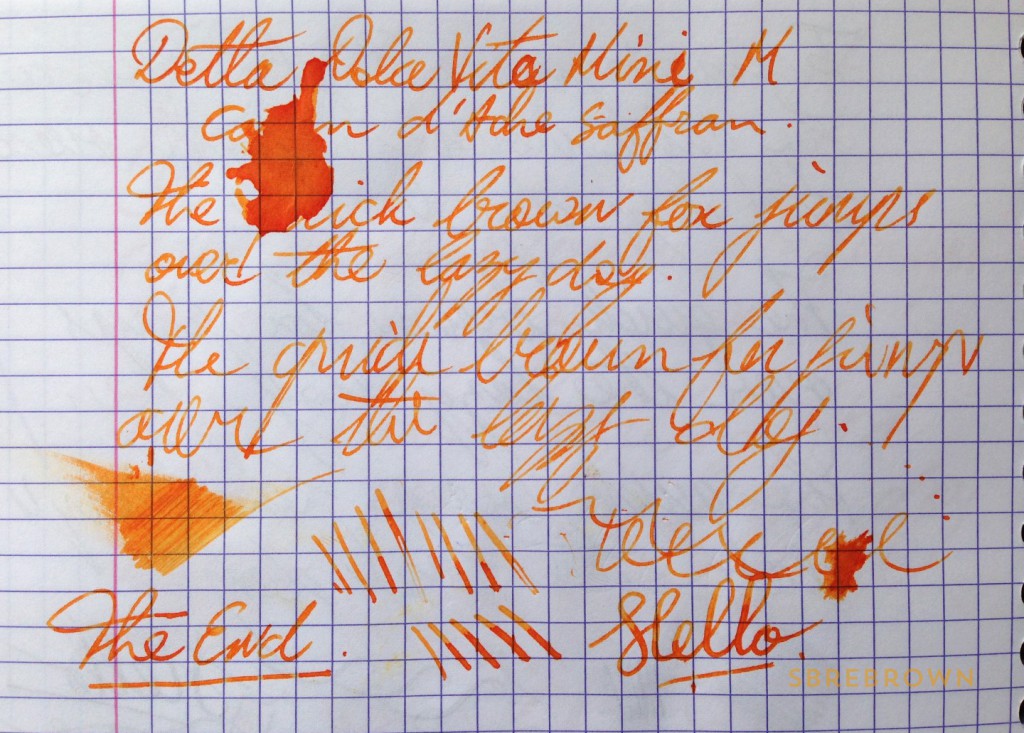 Delta Dolce Vita Mini M
Caran d'Ache Saffran.
The quick brown fox jumps
over the lazy dog.
The quick brown fox jumps
over the lazy dog.
The End. Hello.
SBREBROWN